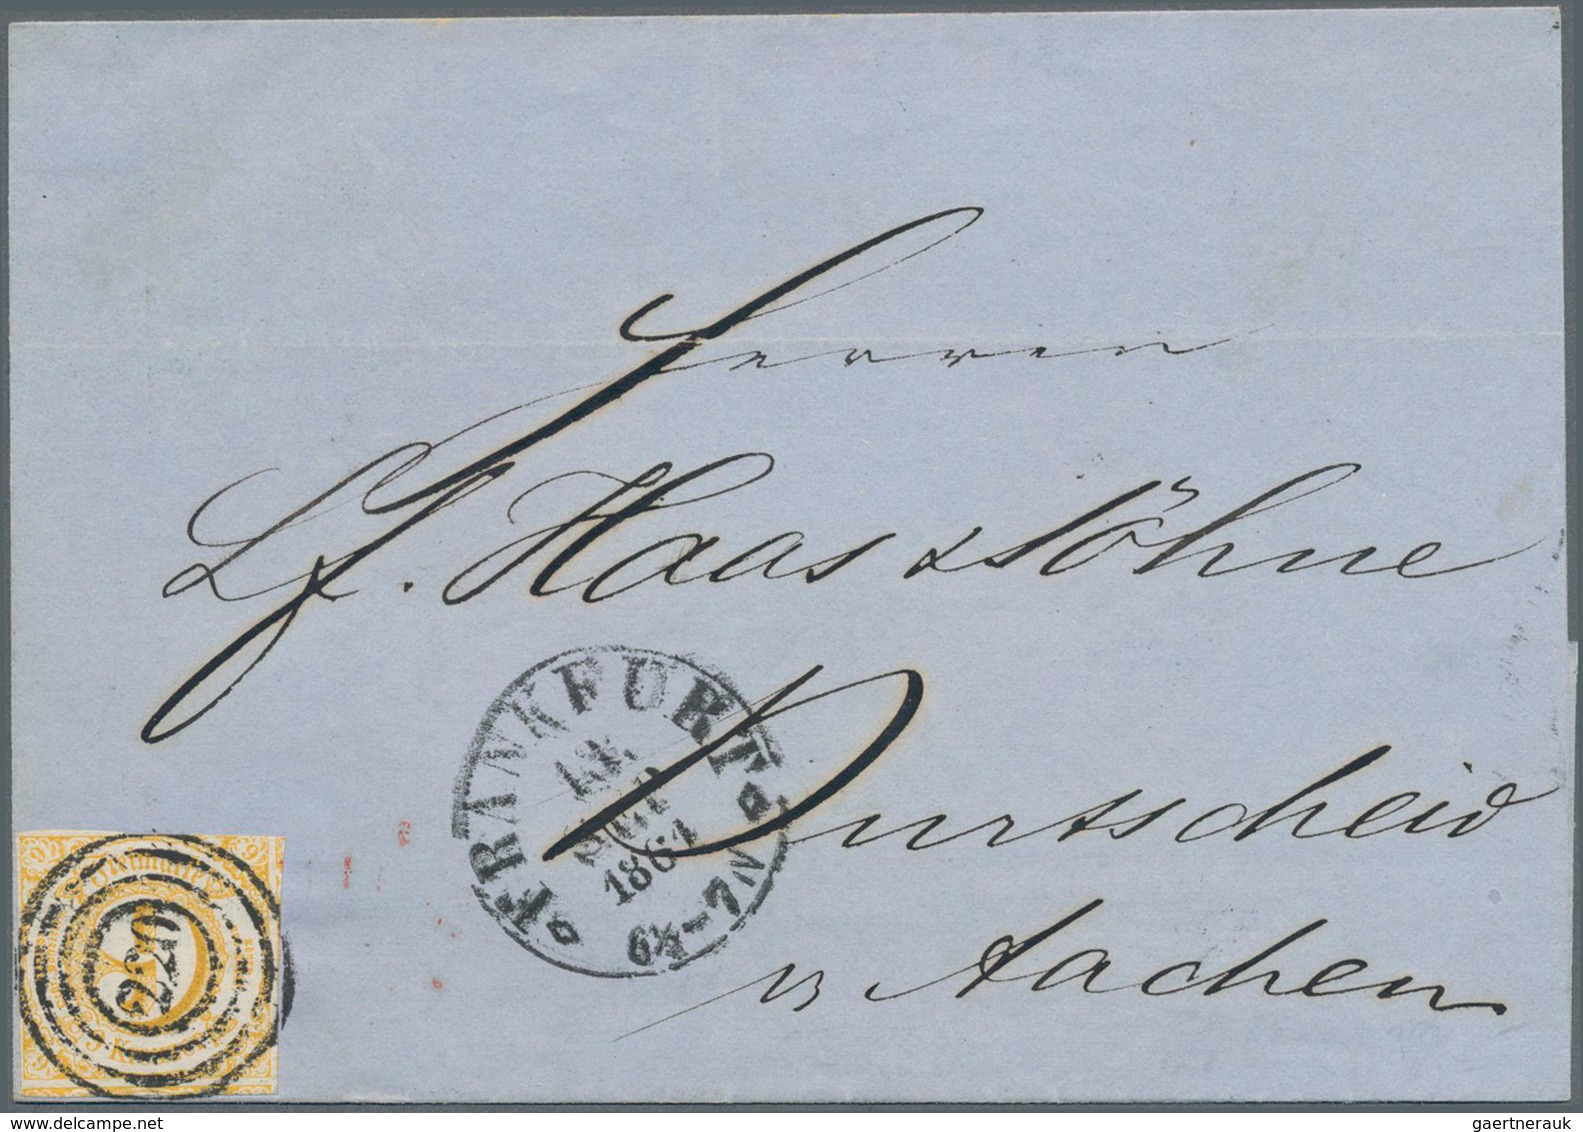 Herren
Lf. Haas & Söhne
Burtscheid
b/ Aachen
FRANKFURT
SEP
186
6½-7N
220
gaertnerauk